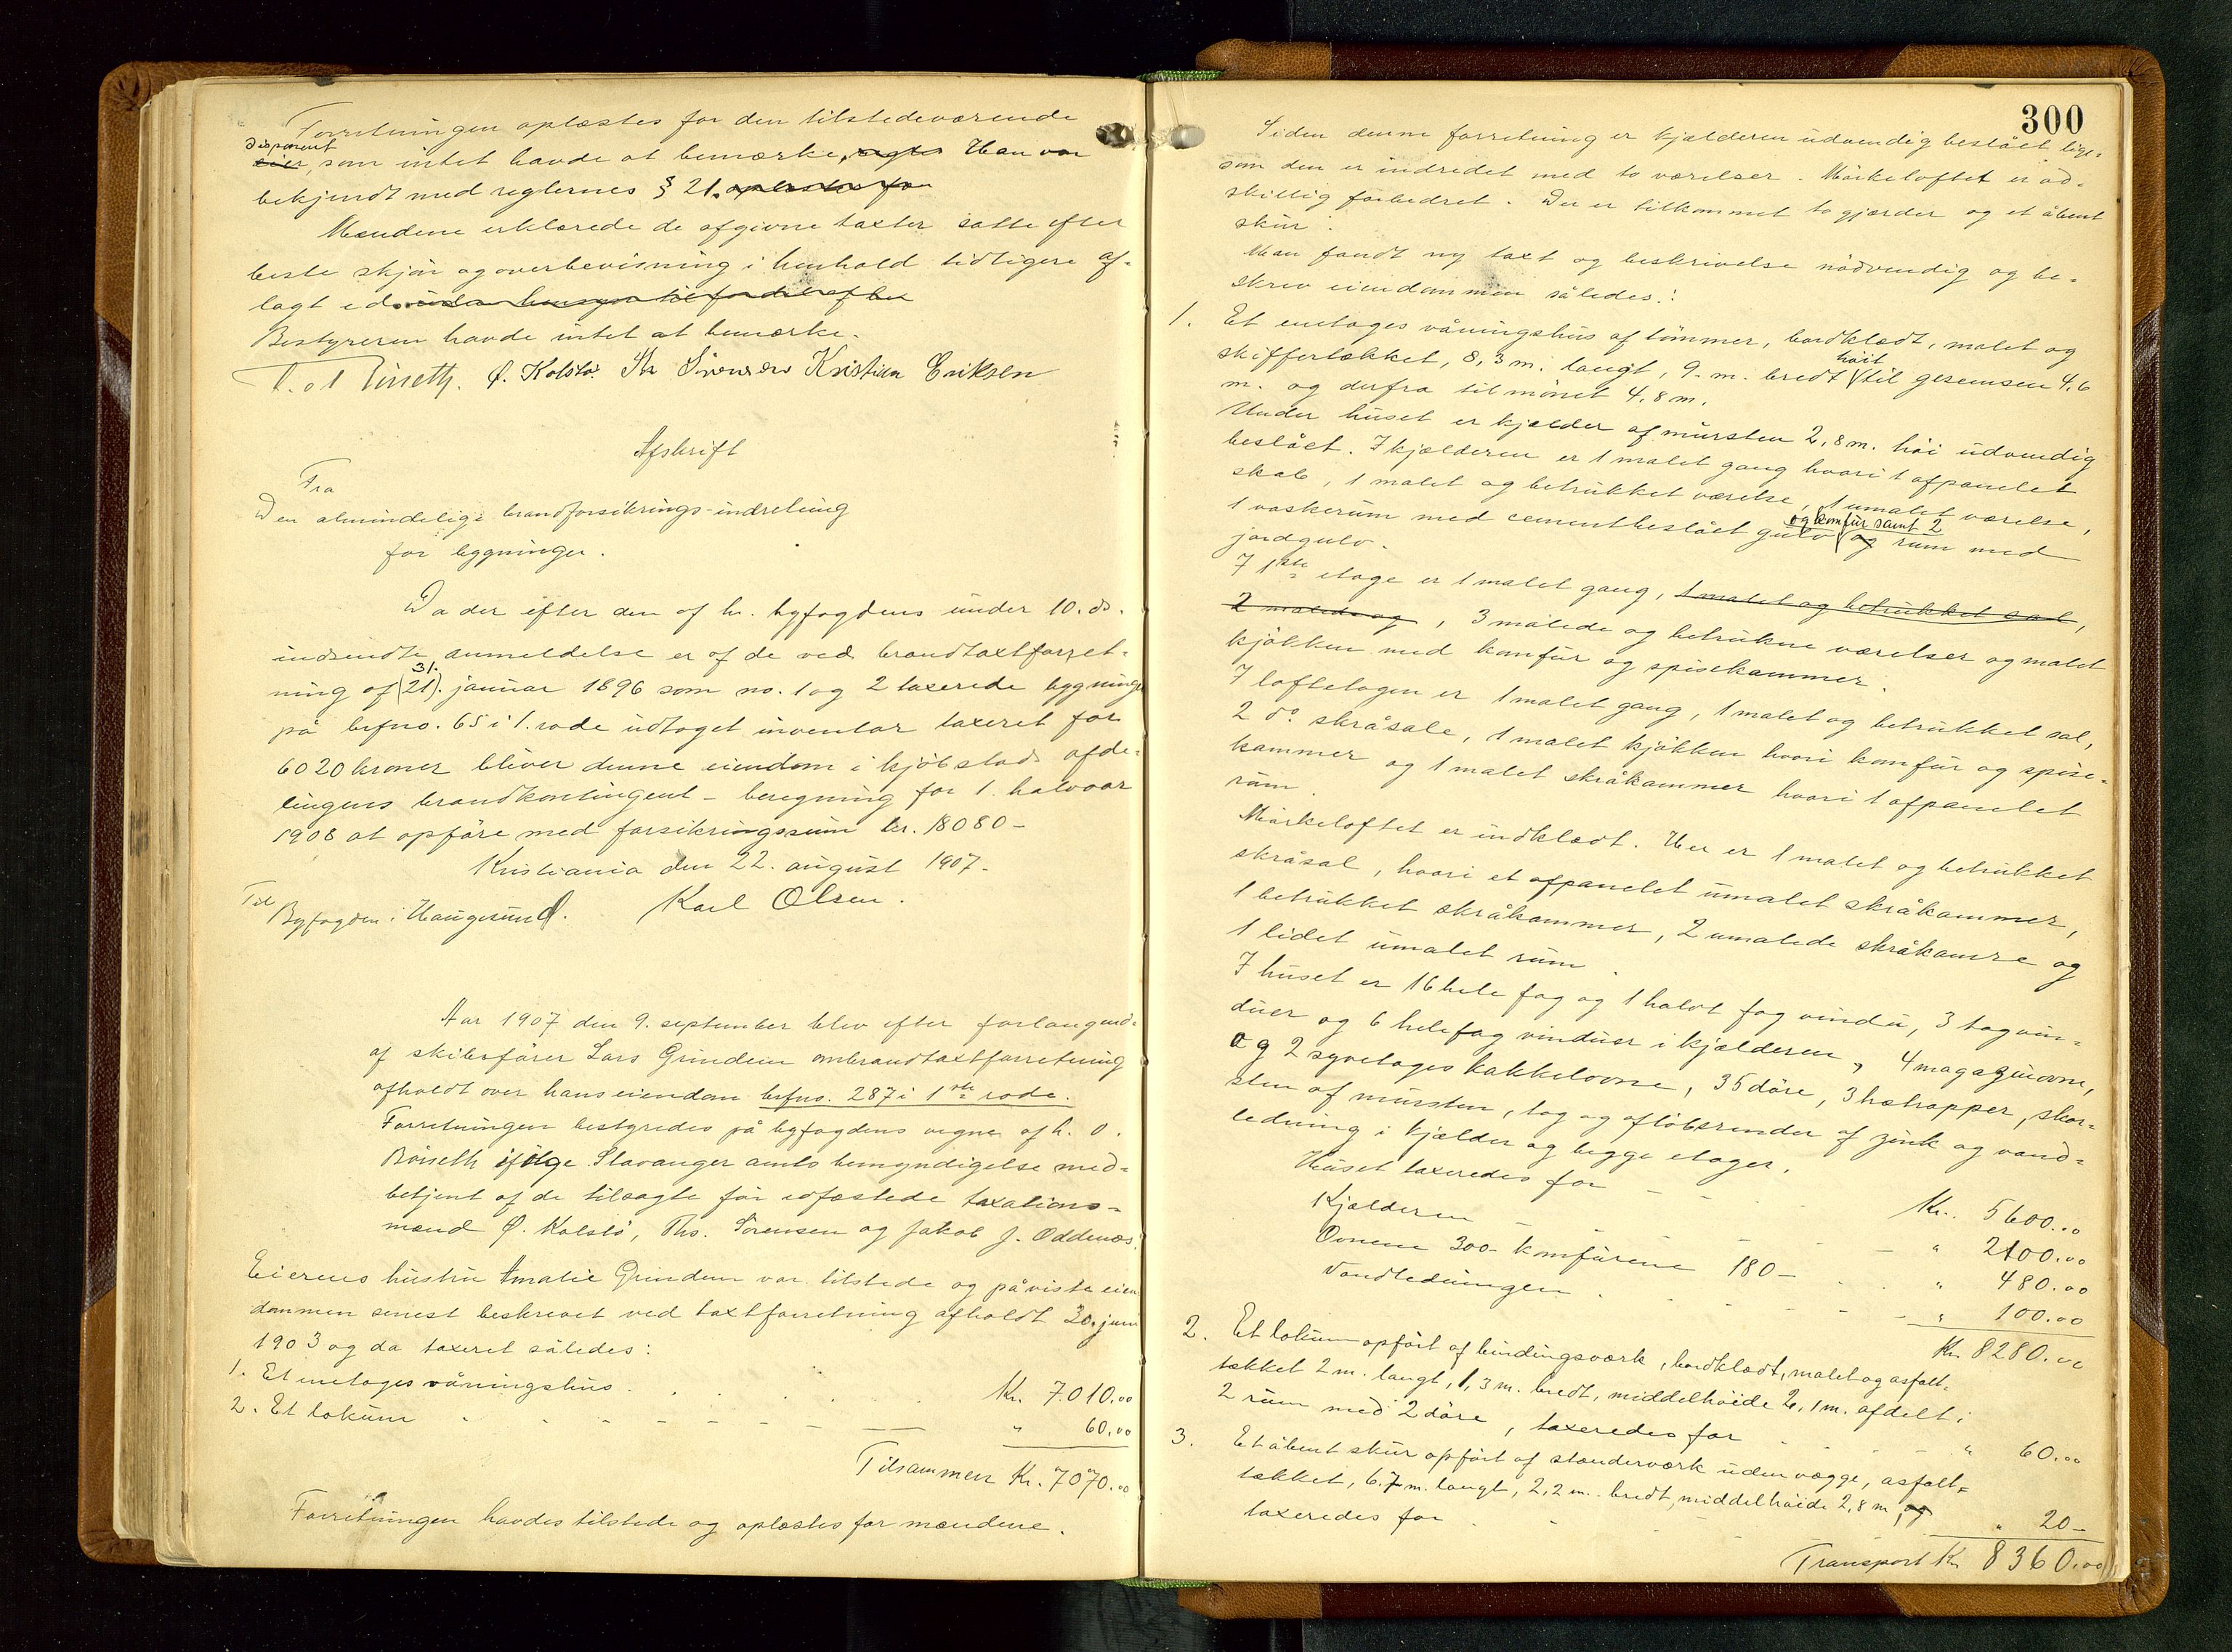 Forretningen oplæstes for den tilstedeværende
disponent
eier, som intet havde at bemærke, Han var
bekjendt med reglernes § 21. oplæstes for
Mændene erklærede de afgivne taxter satte efter
beste skjøn og overbevisning i henhold tidligere af-
lagt ed uden hensyn til fordel efter
Bestyreren havde intet at bemærke.
Ø. Kolstø. Th Sörensen Kristian Eriksen
Afskrift
Fra
Den almindelige brandforsikrings-indretning
for bygninger.
Da der efter den af hr. byfogdens under 10. ds.
indsendte anmeldelse er af de ved brandtaxtforret-
31.
ning af (21). januar 1896 som no. 1 og 2 taxerede bygninger
på brfno. 65 i 1. rode udtaget inventar taxeret for
6020 kroner bliver denne eiendom i kjöbstads afde-
lingens brandkontingent-beregning for 1. halvaar
1908 at opföre med forsikringssum kr. 18080-
Kristiania den 22. august 1907.
Karl Olsen.
Til
Byfogden i Haugesund.
Aar 1907 den 9. september blev efter forlangende
af skibsförer Lars Grindem ombrandtaxtforretning
afholdt over hans eiendom brfno. 287 i 1ste rode.
Forretningen bestyredes på byfogdens vegne af h. O.
Röiseth ifölge Stavanger amts bemyndigelse med-
betjent af de tilsagte för edfæstede taxations-
mænd Ø. Kolstö, Ths. Sörensen og Jakob J. Oddenæs.
Eierens hustru Amalie Grindem var tilstede og påviste eien
dommen senest beskrevet ved taxtforretning afholdt 30. juni
1903 og da taxeret således:
1. Et enetages våningshus . . . . Kr. 7010.00
2. Et lokum - - - - - - - " 60.00
Tilsammen Kr. 7070.00
Forretningen havdes tilstede og oplæstes for mændene.
300
Siden denne forretning er kjælderen udvendig beslået lige-
som den er indredet med to værelser. Mörkeloftet er ad-
skillig forbedret. Der er tilkommet to gjærder og et åbent
skur.
Man fandt ny taxt og beskrivelse nödvendig og be-
skrev eiendommen således:
1. Et enetages våningshus af tömmer, bordklædt, malet og
skiffertækket, 8,3 m. langt, 9- m. bredt höit til gesemsen 4.6
m. og derfra til mönet 4.8 m.
Under huset er kjælder af mursten 2,8 m. höi udvendig
beslået. I kjælderen er 1 malet gang hvori 1 afpanelet
skab, 1 malet og betrukket værelse, 1 umalet værelse,
1 vaskerum med cementbeslået gulv og komfur samt 2 og rum med
jordgulv.
I 1ste etage er 1 malet gang, 1 malet og betrukket sal,
2 malede og, 3 malede og betrukne værelser og malet
kjökken med komfur og spisekammer.
I loftetagen er 1 malet gang, 1 malet og betrukket sal,
2 do. skråsale, 1 malet kjökken hvori komfur og spise-
kammer og 1 malet skråkammer hvori 1 afpanelet
rum.
Mörkeloftet er indklædt. Her er 1 malet og betrukket
skråsal, hvori et afpanelet umalet skråkammer,
1 betrukket skråkammer, 2 umalede skråkamre og
1 lidet umalet rum.
I huset er 16 hele fag og 1 halvt fag vindu, 3 tagvin-
duer og 6 hele fag vinduer i kjælderen, 4 magazinovne,
og 2 syvetages kakkelovne, 35 döre, 3 hætrapper, skor-
sten af mursten, tag og aflöbsrender af zink og vand-
ledning i kjælder og begge etager.
Huset taxeredes for - - - Kr. 5600.00
Kjælderen - - - " 2100.00
Ovnene 300- komfurene 180- . " 480.00
Vandledningen . - - - - " 100.00
Kr. 8280.00
2. Et lokum opfört af bindingsværk, bordklædt, malet og asfalt-
tækket 2 m. langt, 1,3 m. bredt, middelhöide 2,1 m. afdelt i
2 rum med 2 döre, taxeredes for - - - " 60.00
3. Et åbent skur opfört af stænderværk uden vægge, asfalt-
tækket, 6.7 m. langt, 2,2 m. bredt, middelhöide 2,8 m, og
taxeredes for . - - - - " 20-
Transport Kr 8360.00